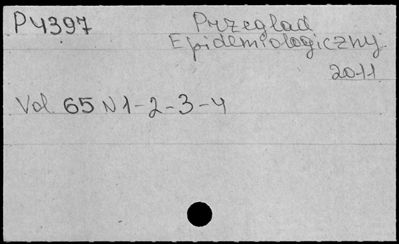 P4397 Przeglad
Epidemiologiczny.
2011
Vol 65 N 1-2-3-4